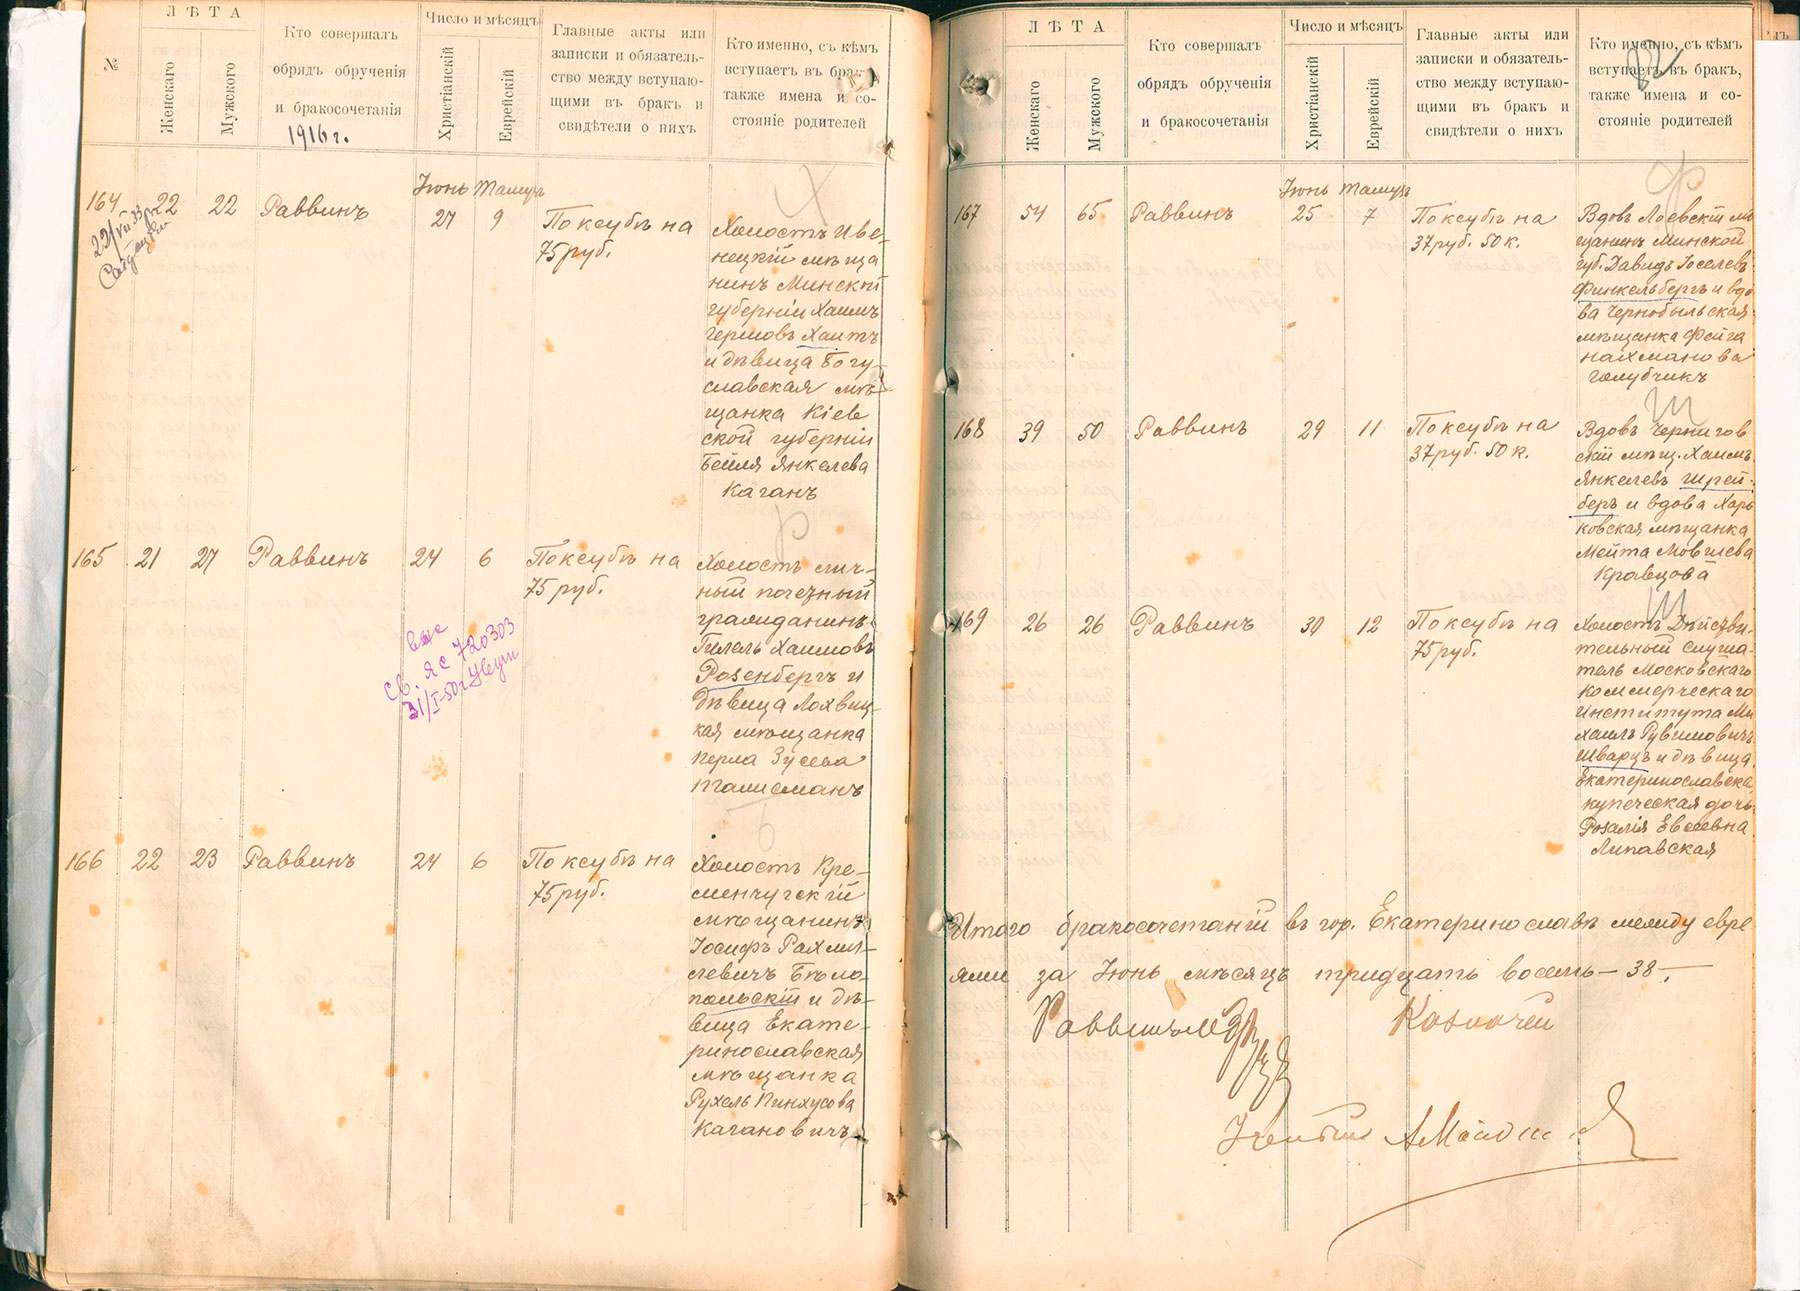 №
ЛѢТА
Женскаго
Мужского
Кто совершалъ
обрядъ обрученія
и бракосочетанія
1916 г.
Число и мѣсяцъ
Христіанскій
Еврейскій
Главные акты или
записки и обязатель-
ство между вступаю-
щими въ бракъ и
свидѣтели о нихъ
Кто именно, съ кѣмъ
вступаетъ въ бракъ
также имена и со-
стояніе родителей
Іюнь Тамузъ
164 22 22 Раввинъ 27 9 По ксубѣ на
75 руб.
Холостъ Иве-
нецкій мѣща
нинъ Минской
губерніи Хаимъ
Гершовъ Хаитъ
и дѣвица Богу-
славская мѣ-
щанка Кіев
ской губерніи
Бейля Янкелева
Каганъ
22/VII 33
165 21 27 Раввинъ 24 6 По ксубѣ на
75 руб.
Холостъ лич-
ный почетный
гражданинъ
Гилель Хаимовъ
Розенбергъ и
дѣвица Лохвиц-
кая мѣщанка
Перла Зусева
Талисманъ
св. ЯС 720303
31/I-50г
166 22 23 Раввинъ 24 6 По ксубѣ на
75 руб.
Холостъ Кре-
менчугскій
мѣщанинъ
Іосифъ Рахми-
левичъ Бѣло-
польскій и дѣ-
вица Екате-
ринославская
мѣщанка
Рухель Пинхусова
Кагановичъ
82
ЛѢТА
Женскаго
Мужского
Кто совершалъ
обрядъ обрученія
и бракосочетанія
Число и мѣсяцъ
Христіанскій
Еврейскій
Главные акты или
записки и обязатель-
ство между вступаю-
щими въ бракъ и
свидѣтели о нихъ
Кто именно, съ кѣмъ
вступаетъ въ бракъ,
также имена и со-
стояніе родителей
Іюнь Тамузъ
Ф
167 54 65 Раввинъ 25 7 По ксубѣ на
37 руб. 50 к.
Вдовъ Лоевскій мѣ
щанинъ Минской
губ. Давидъ Іоселевъ
Финкельбергъ и вдо
ва Чернобыльская
мѣщанка Фейга
Нахманова
Голубчикъ
Ш
168 39 50 Раввинъ 29 11 По ксубѣ на
37 руб. 50 к.
Вдовъ Чернигов
скій мѣщ. Хаимъ
Янкелевъ Шрей-
беръ и вдова Харь
ковская мѣщанка
Мейта Мовшева
Кравцова
Ш
169 26 26 Раввинъ 30 12 По ксубѣ на
75 руб.
Холостъ Дѣйстви-
тельный слуша-
тель Московскаго
Коммерческаго
Института Ми
хаилъ Рувимовичъ
Шварцъ и дѣвица
Екатеринославска
купеческая дочь
Розалія Евсеевна
Липавская
Итого бракосочетаній въ гор. Екатеринославѣ между евре
ями за Іюнь мѣсяцъ тридцать восемь — 38 —.
Раввинъ
Казначей
Ученый